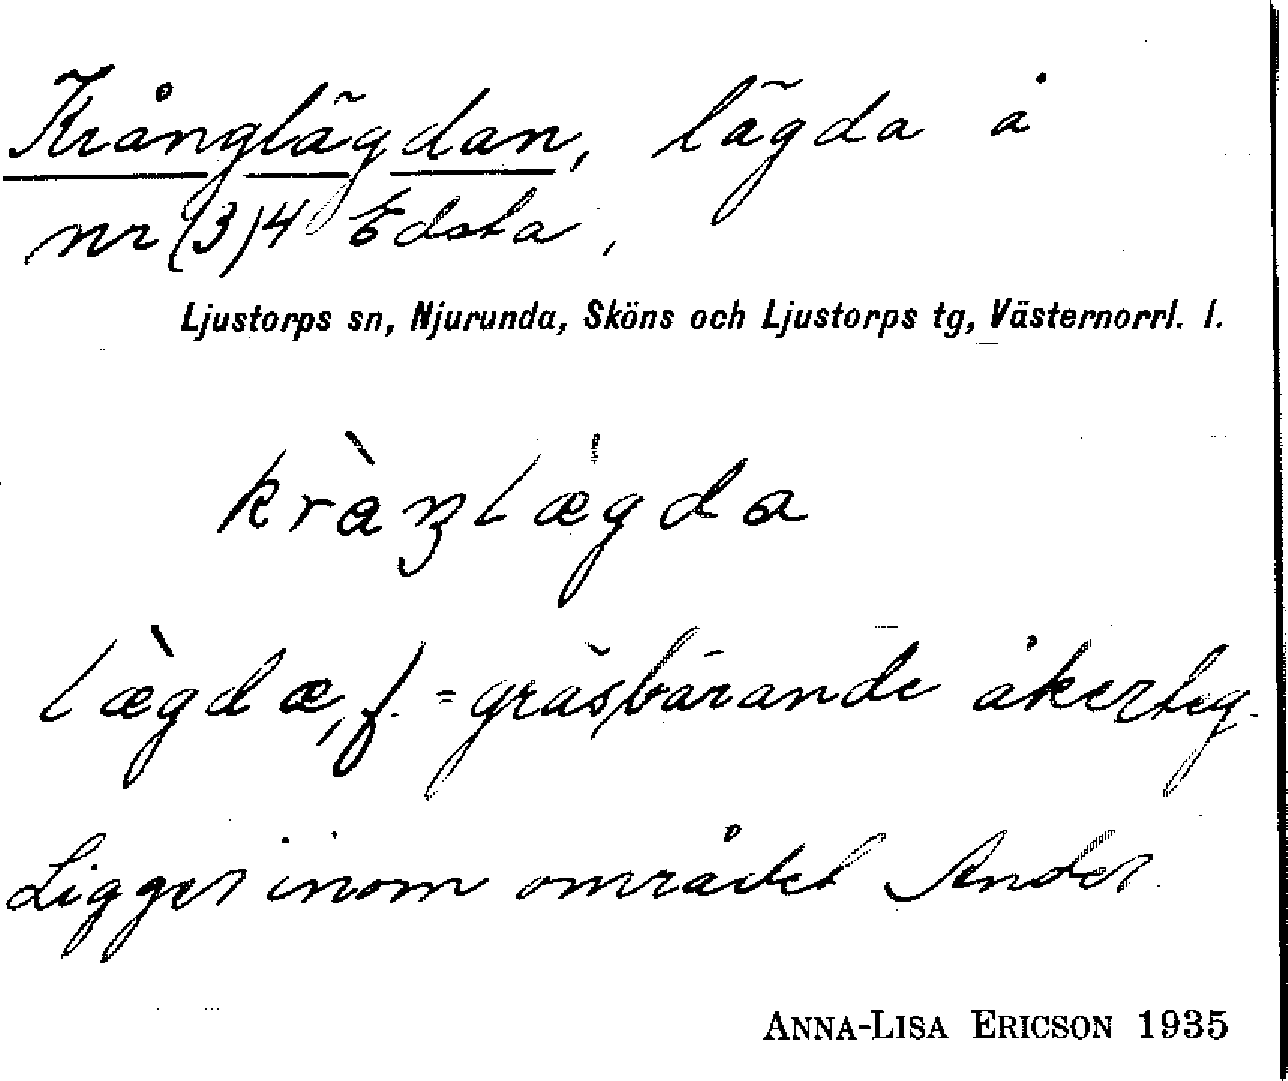 Krånglägdan, lägda å
nr (3)4 Edsta,
Ljustorps sn, Njurunda, Sköns och Ljustorps tg, Västernorrl. l.
kràŋlægda
lægdæ, f. = gräsbärande åkerteg.
Ligger inom området
ANNA-LISA ERICSON 1935